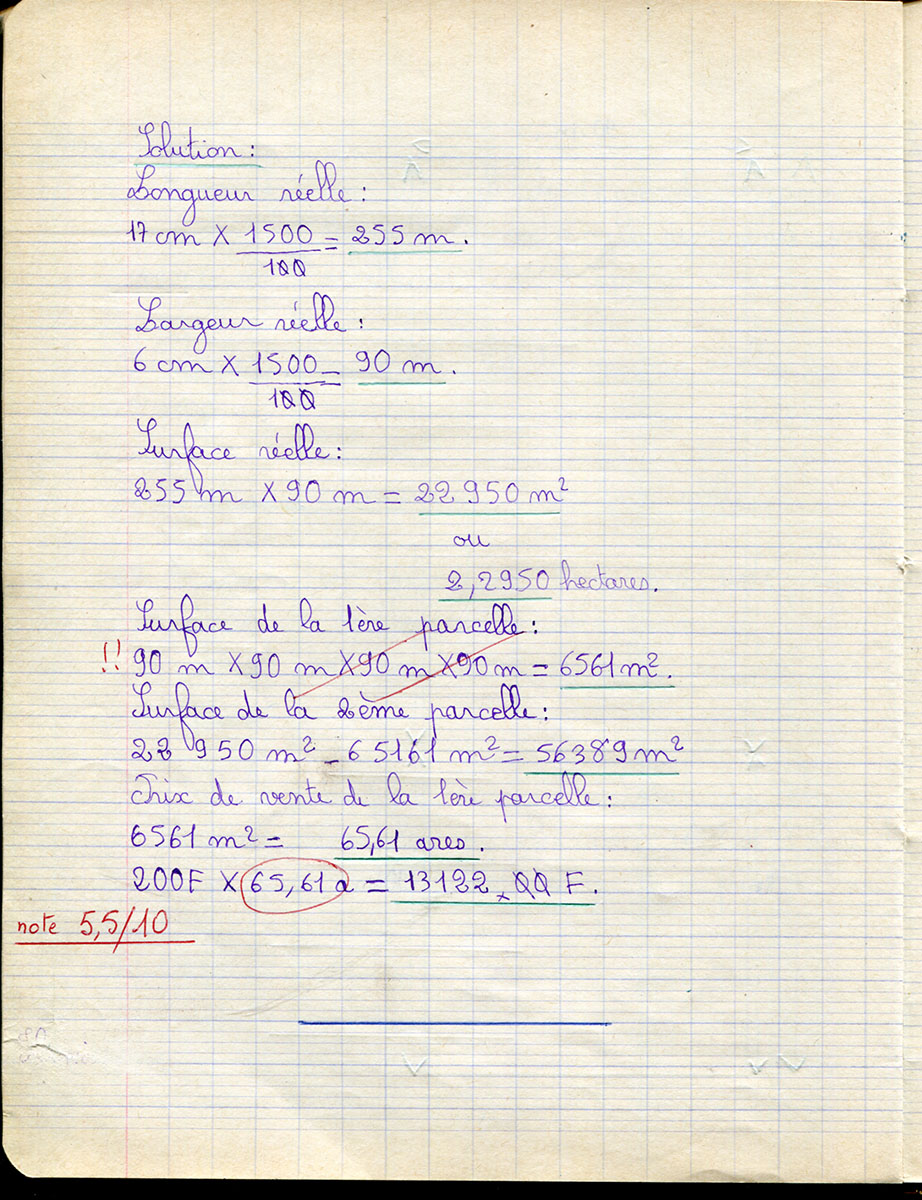 Solution :
Longueur réelle :
17 cm X 1500 = 255 m.
100
Largeur réelle :
6 cm X 1500 = 90 m.
100
Surface réelle :
255 m X 90 m = 22 950 m²
ou
2,2950 hectares.
Surface de la 1ère parcelle :
!! 90 m X 90 m X 90 m X 90 m = 6561 m².
Surface de la 2ème parcelle :
22 950 m² - 65161 m² = 56389 m²
Prix de vente de la 1ère parcelle :
6561 m² = 65,61 ares.
200F X 65,61 a = 13122,00 F.
note 5,5/10